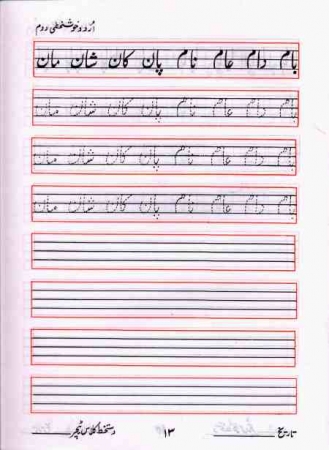 اُردو خوشخطی دوم
بام دام عام نام پان کان شان مان
بام دام عام نام پان کان شان مان
بام دام عام نام پان کان شان مان
بام دام عام نام پان کان شان مان
تاریخ ۱۳ دستخط کلاس ٹیچر